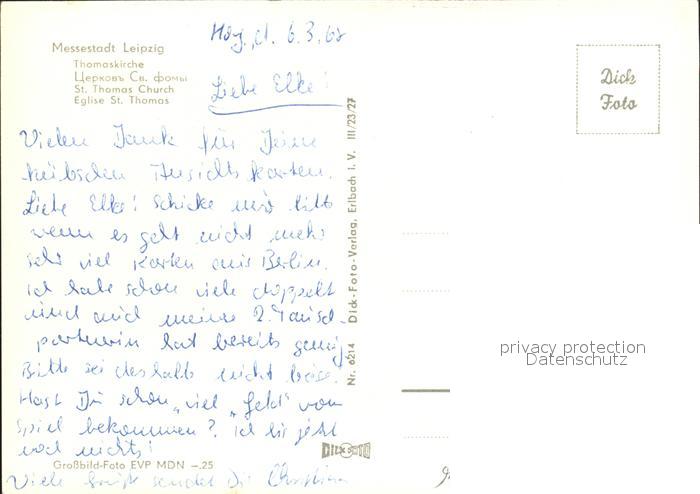 Messestadt Leipzig
Thomaskirche
Церковъ Св. фомы
St. Thomas Church
Eglise St. Thomas
d. 6.3.68
Liebe Elke!
Vielen Dank für Deine
hübschen Ansichtskarten.
Liebe Elke! Schicke mir bitte
wenn es geht nicht mehr
sehr viel Karten aus Berlin.
ich habe schon viele doppelt
und auch meine 2. Tausch-
partnerin hat bereits genug
Bitte sei deshalb nicht böse.
Hast Du schon „viel „Geld" vom
Spiel bekommen? ich bis jetzt
noch nichts!
Viele Grüße sendet Dir Christina
Großbild-Foto EVP MDN –.25
Nr. 6214 Dick-Foto-Verlag, Erlbach i. V. III/23/27
DICK FOTO
Dick
Foto
privacy protection
Datenschutz